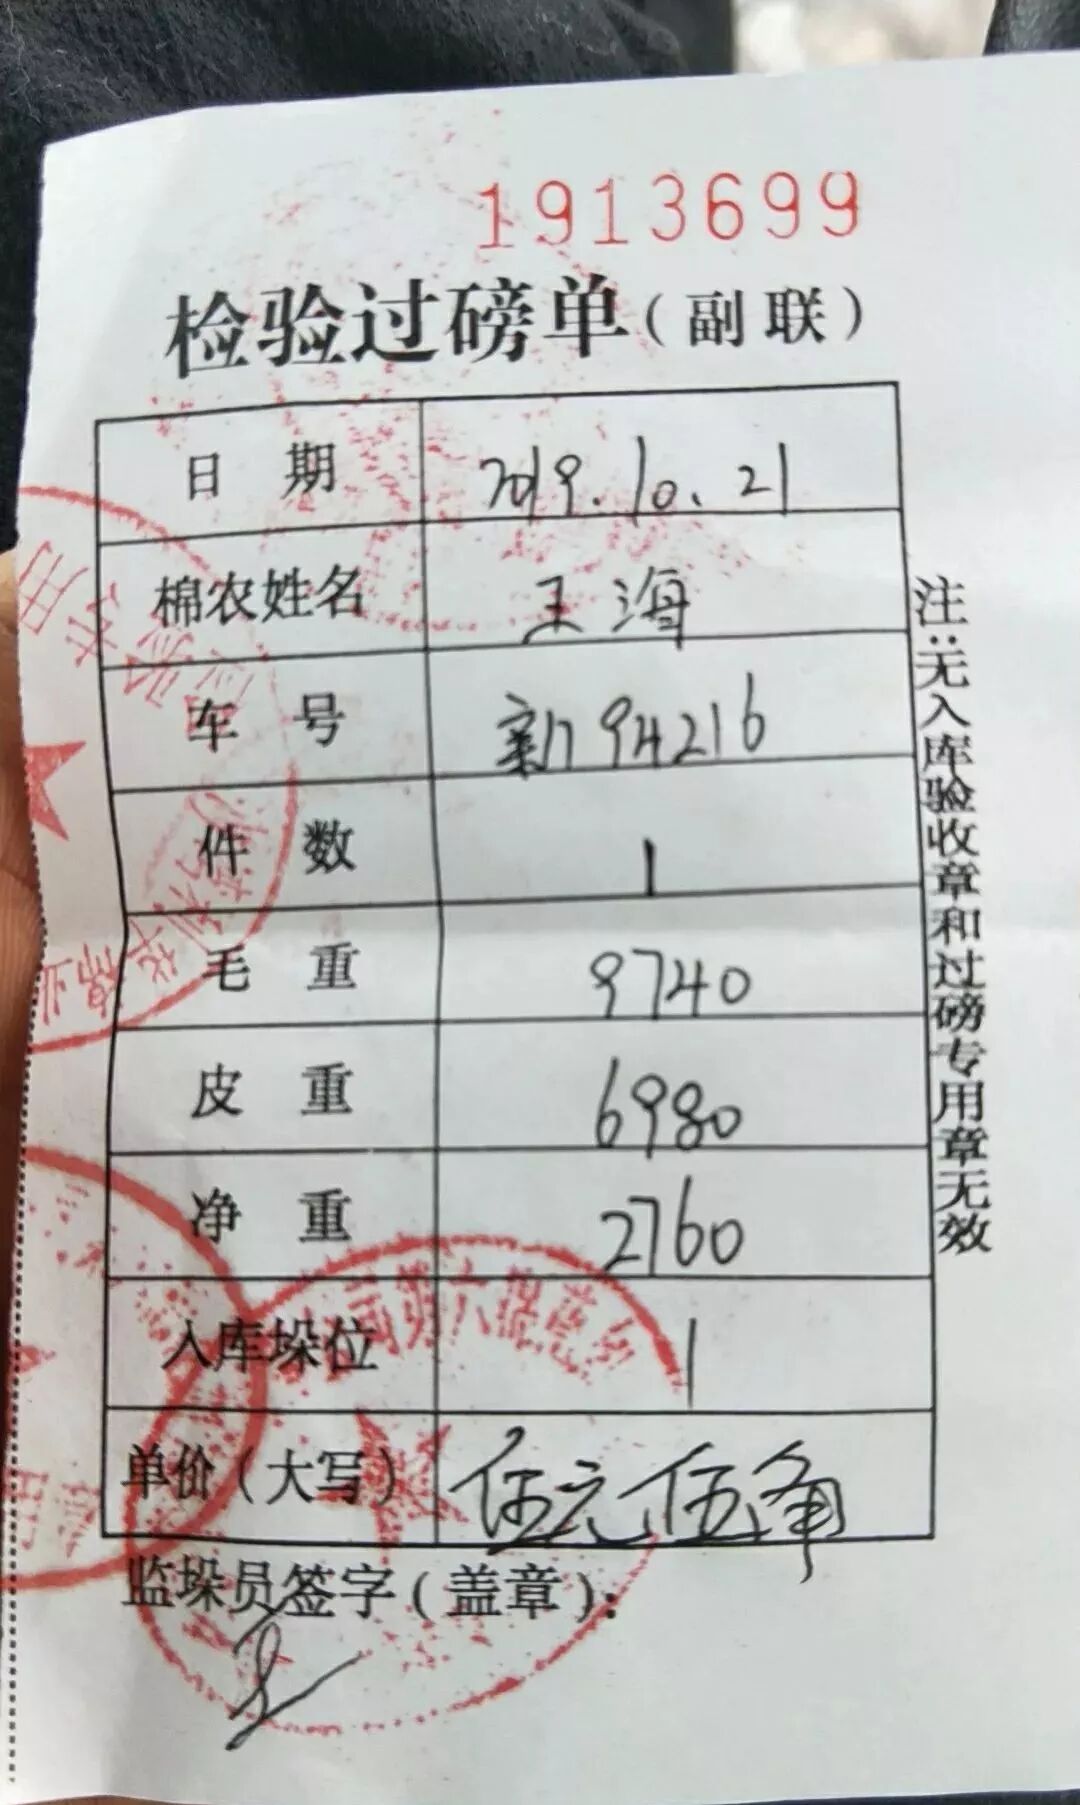 1913699
检验过磅单(副联)
日 期 2019.10.21
棉农姓名 王海
车 号 新94216
件 数 1
毛 重 9740
皮 重 6980
净 重 2760
入库垛位 1
单价(大写) 伍元伍角
监垛员签字(盖章):
注:无入库验收章和过磅专用章无效